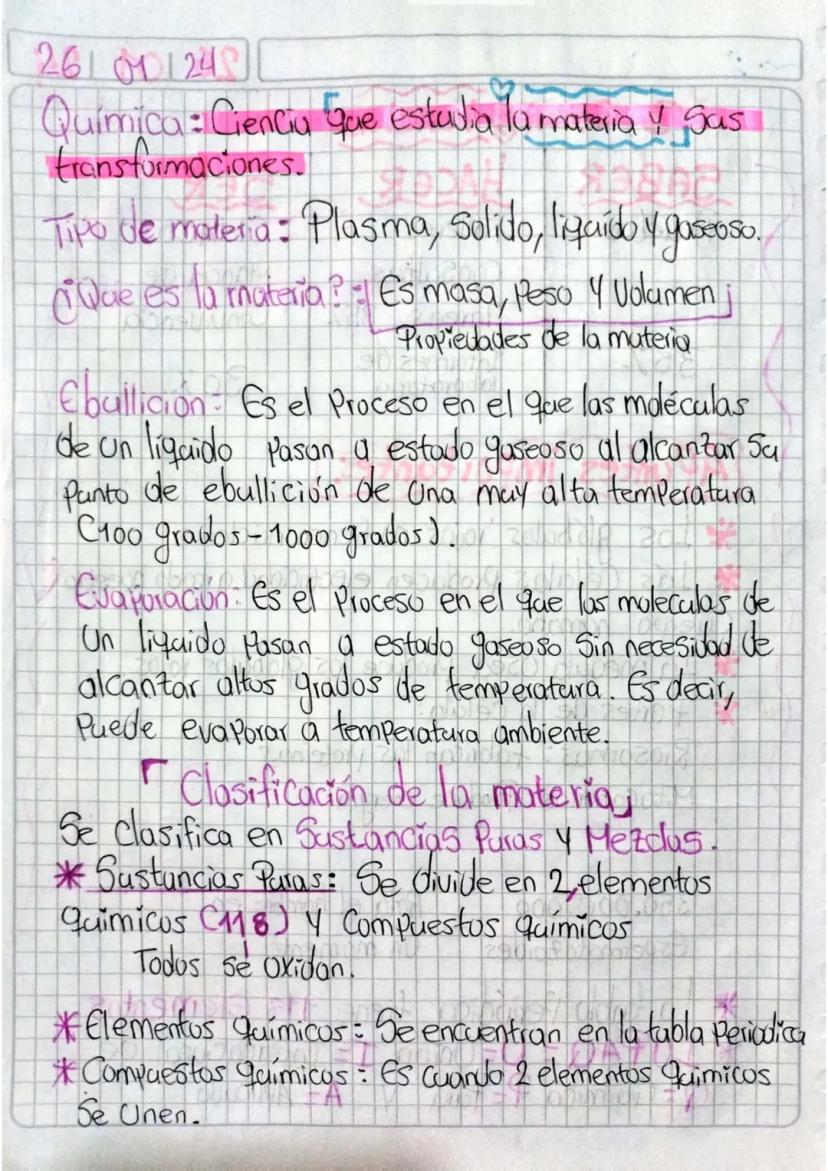 26 | 01 | 24
Química: Ciencia que estudia la materia y sus
transformaciones.
Tipo de materia: Plasma, solido, liquído y gaseoso.
¿Que es la materia?: Es masa, peso y volumen
Propiedades de la materia
Ebullición: Es el proceso en el que las moléculas
de un líquido pasan a estado gaseoso al alcanzar su
punto de ebullición de una muy alta temperatura
(100 grados - 1000 grados).
Evaporación: Es el proceso en el que las moleculas de
un liquido pasan a estado gaseoso sin necesidad de
alcanzar altos grados de temperatura. Es decir,
puede evaporar a temperatura ambiente.
Clasificación de la materia
Se clasifica en Sustancias Puras y Mezclas.
* Sustancias Puras: Se divide en 2, elementos
químicos (118) y compuestos químicos
Todos se oxidan.
* Elementos químicos: Se encuentran en la tabla periodica
* Compuestos químicos: Es cuando 2 elementos químicos
se unen.